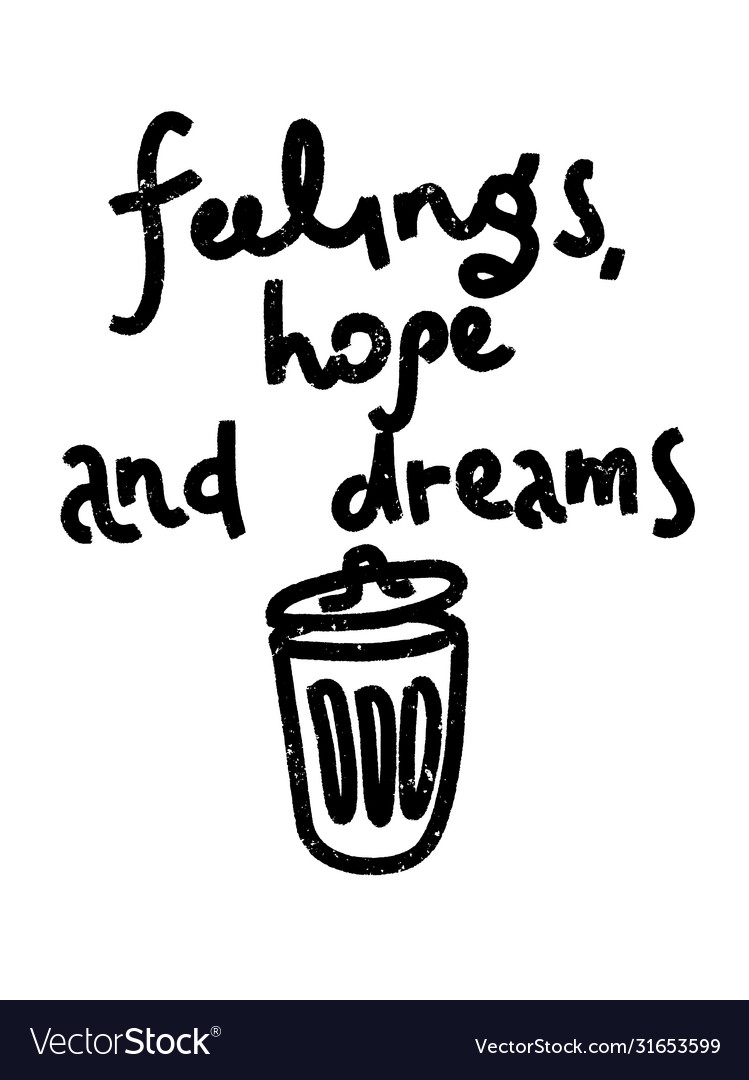 feelings,
hope
and dreams
VectorStock®
VectorStock.com/31653599